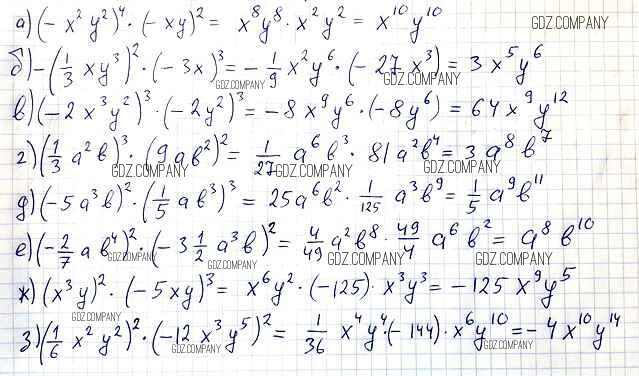 а) (- x² y²)⁴ · (- xy)² = x⁸y⁸ · x² y² = x¹⁰ y¹⁰ GDZ.COMPANY
б) -(1/3 xy³)² · (-3x)³ = - 1/9 x² y⁶ · (-27 x³) = 3 x⁵ y⁶
GDZ.COMPANY GDZ.COMPANY
в) (-2 x³ y²)³ · (-2y²)³ = -8 x⁹ y⁶ · (-8y⁶) = 64 x⁹ y¹²
г) (1/3 a² b)³ · (9 a b²)² = 1/27 a⁶ b³ · 81 a² b⁴ = 3 a⁸ b⁷
GDZ.COMPANY GDZ.COMPANY GDZ.COMPANY
д) (-5 a³ b)² · (1/5 a b³)³ = 25 a⁶ b² · 1/125 a³ b⁹ = 1/5 a⁹ b¹¹
е) (-2/7 a b⁴)² · (-3 1/2 a³ b)² = 4/49 a² b⁸ · 49/4 a⁶ b² = a⁸ b¹⁰
GDZ.COMPANY GDZ.COMPANY GDZ.COMPANY GDZ.COMPANY
ж) (x³ y)² · (-5xy)³ = x⁶ y² · (-125) · x³ y³ = -125 x⁹ y⁵
GDZ.COMPANY
з) (1/6 x² y²)² · (-12 x³ y⁵)² = 1/36 x⁴ y⁴ · (-144) · x⁶ y¹⁰ = -4 x¹⁰ y¹⁴
GDZ.COMPANY GDZ.COMPANY